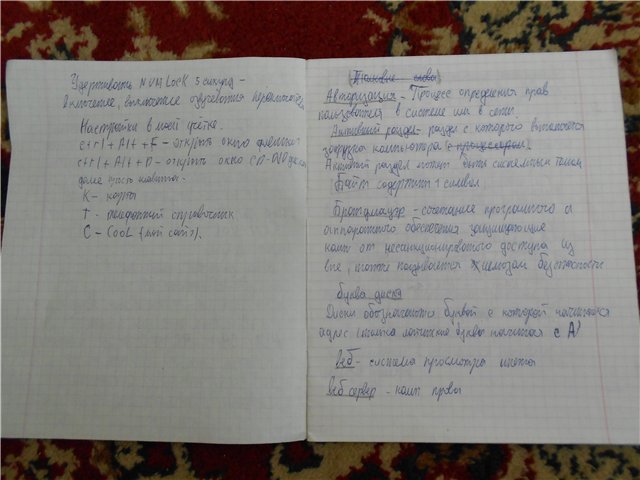 Удерживать NUM Lock 5 секунд -
включение, выключение озвучивания
Настройки в моей
ctrl + Alt + F - открыть окно
ctrl + Alt + D - открыть окно CD-DVD
K - карты
T - телефонный справочник
C - CooL (мой сайт).
Толковые слова
Авторизация - Процесс определения прав
пользователя в системе или в сети.
Активный раздел - раздел с которого выполняется
загрузка компьютера (с процессором)
Активный раздел может быть системным
Байт содержит 1 символ
Брандмауэр - сочетание программного и
аппаратного обеспечения защищающие
комп от несанкционированого доступа из
вне, также называется
безопасности
буква диска
Диски обозначаются буквой с которой начинается
адрес латинские буквы начиная с А)
Веб - система просмотра
Веб сервер - комп